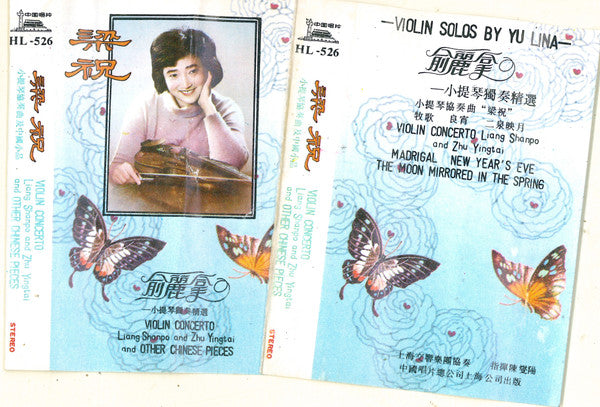 中国唱片
HL-526
梁祝
小提琴協奏曲及中國小品
VIOLIN CONCERTO
Liang Shanpo and Zhu Yingtai
and OTHER CHINESE PIECES
STEREO
梁祝
俞麗拿
—小提琴獨奏精選
VIOLIN CONCERTO
Liang Shanpo and Zhu Yingtai
and OTHER CHINESE PIECES
中国唱片
HL-526
梁祝
小提琴協奏曲及中國小品
VIOLIN CONCERTO
Liang Shanpo and Zhu Yingtai
and OTHER CHINESE PIECES
STEREO
—VIOLIN SOLOS BY YU LINA—
俞麗拿
—小提琴獨奏精選
小提琴協奏曲“梁祝”
牧歌 良宵 二泉映月
VIOLIN CONCERTO Liang Shanpo
and Zhu Yingtai
MADRIGAL NEW YEAR'S EVE
THE MOON MIRRORED IN THE SPRING
上海交響樂團協奏 指揮陳燮陽
中國唱片總公司上海公司出版